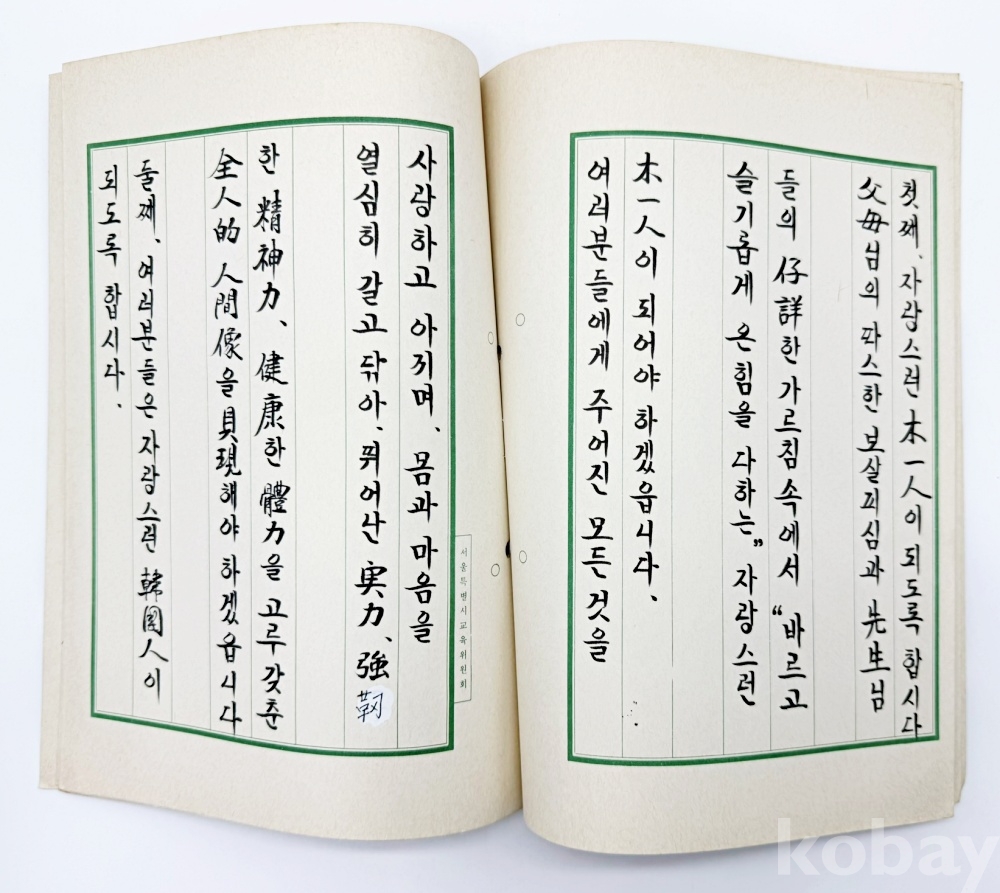 첫째、자랑스런 木一人이 되도록 합시다
父母님의 따스한 보살피심과 先生님
들의 仔詳한 가르침 속에서 "바르고
슬기롭게 온힘을 다하는" 자랑스런
木一人이 되어야 하겠읍니다.
여러분들에게 주어진 모든것을
사랑하고 아끼며、몸과 마음을
열심히 갈고 닦아、뛰어난 実力、強靭
한 精神力、健康한 體力을 고루 갖춘
全人的 人間像을 具現해야 하겠읍니다
둘째、여러분들은 자랑스런 韓國人이
되도록 합시다.
서울특별시교육위원회
kobay